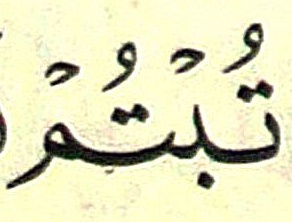 تُبْتُمْ